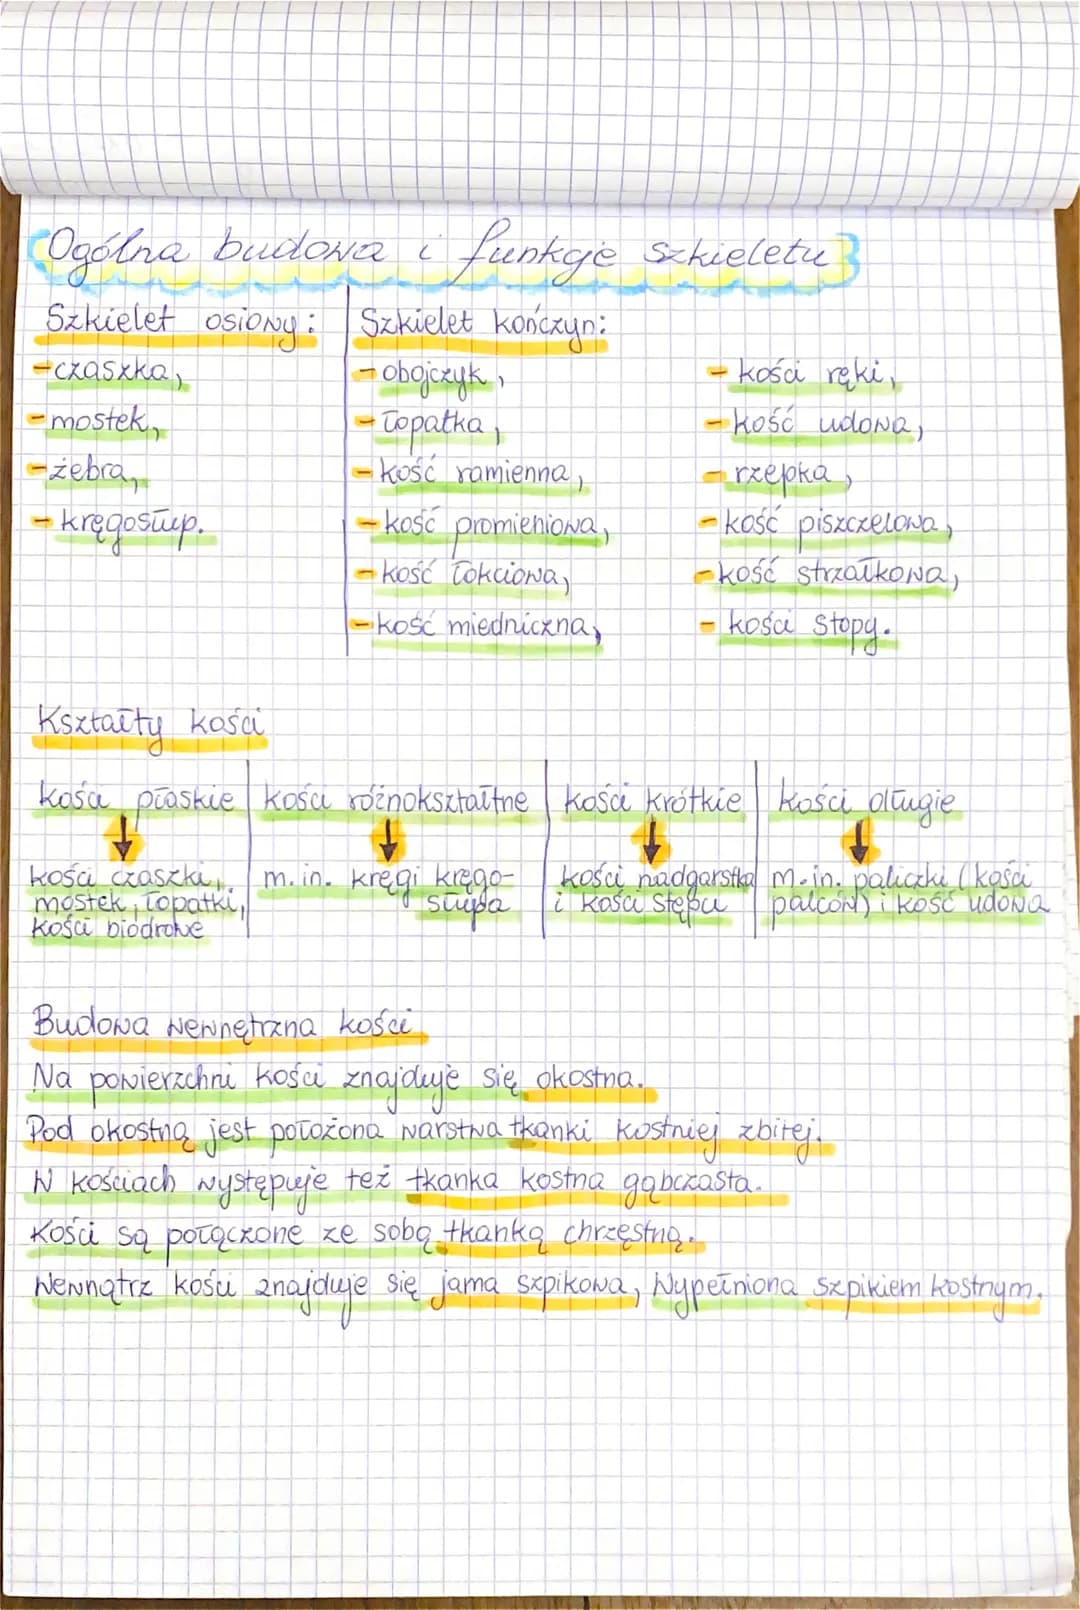 Ogólna budowa i funkcje szkieletu
Szkielet osiowy:
-czaszka,
-mostek,
-żebra,
- kręgosłup.
Szkielet kończyn:
-obojczyk,
-łopatka,
-kość ramienna,
-kość promieniowa,
-kość łokciowa,
-kość miedniczna,
- kości ręki,
-kość udowa,
-rzepka,
-kość piszczelowa,
-kość strzałkowa,
- kości stopy.
Kształty kości
kości płaskie
kości czaszki,
mostek, łopatki,
kości biodrowe
kości różnokształtne
m.in. kręgi kręgo-
słupa
kości krótkie
kości nadgarstka
i kości stępu
kości długie
m.in. paliczki (kości
palców) i kość udowa
Budowa wewnętrzna kości
Na powierzchni kości znajduje się okostna.
Pod okostną jest położona warstwa tkanki kostniej zbitej.
W kościach występuje też tkanka kostna gąbczasta.
Kości są połączone ze sobą tkanką chrzęstną.
Wewnątrz kości znajduje się jama szpikowa, Wypełniona szpikiem kostnym.